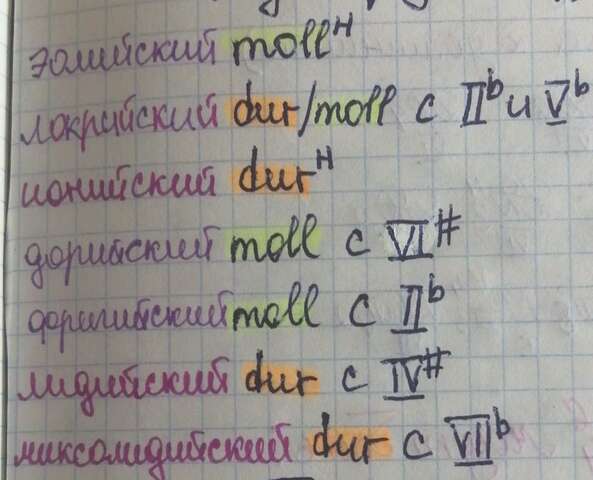 эолийский moll н
локрийский dur/moll с II b и V b
ионийский dur н
дорийский moll с VI #
фригийский moll с II b
лидийский dur с IV #
миксолидийский dur с VII b